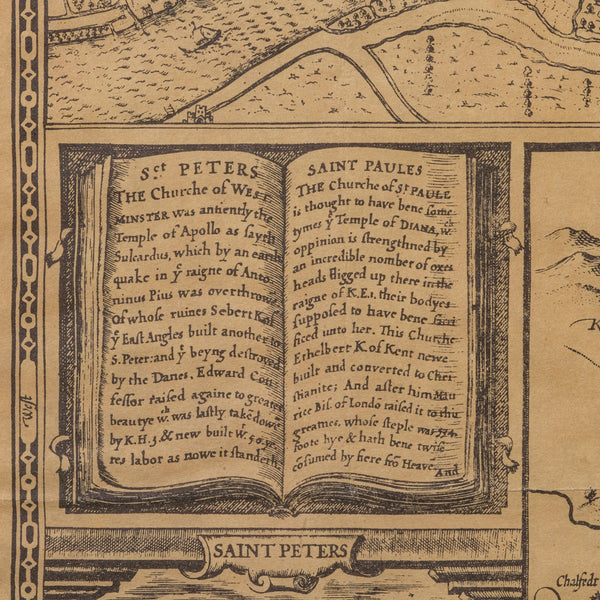 Sct PETERS
THE Churche of WEST
MINSTER was antiently the
Temple of Apollo as sayth
Sulcardus, which by an earth
quake in yͤ raigne of Anto
ninus Pius was overthrowe
Of whose ruines Sebert K. of
yͤ East Angles built another to
S. Peter: and yͤ beyng destroyed
by the Danes. Edward Con
fessor raised againe to greater
beautye wͨʰ was lastly takē dowē
by K.H.3 & new built wͭ 50 we
res labor as nowe it standeth
SAINT PAULES
THE Churche of St PAULE
is thought to have bene some
tymes yͤ Temple of DIANA, wͨ
oppinion is strengthned by
an incredible nomber of oxes
heads digged up there in the
raigne of K.E.1. their bodyes
supposed to have bene sacri
ficed unto her. This Churche
Ethelbert K. of Kent newe
built and converted to Chri
stianite; And after him Mau
rice Bis. of Londō raised it to this
greatnes, whose steple was 534.
foote hye & hath bene twise
cōsumed by fiere frō Heave. And
SAINT PETERS
West
Chalfedt
K